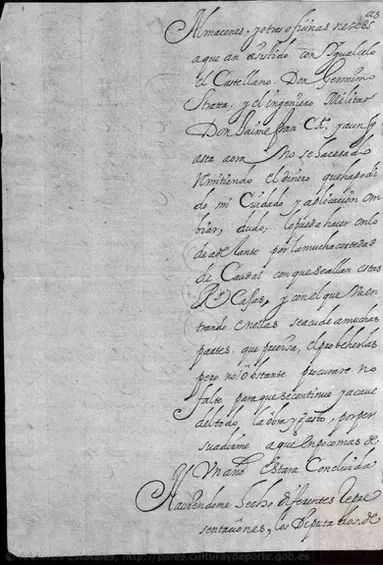 Almacenes, y otras oficinas neces^as
a que an asistido con Igual celo
el Castellano Don Geronimo
y el ingeniero Militar
Don Jaime y aun q
asta aora No se hacesad
Remitiendo el dinero que ha podi
do mi Cuidado y aplicacion em
biar, dudo, lo pueda hacer en lo
de adelante por la mucha cortedad
de Caudal con que se allan estas
R^s Cajas, y con el que va en
trando en ellas se acude a muchas
partes que precisa, el probeherlas
pero no obstante procurare no
falte para que se continue y acave
del todo la obra y gasto, por per
suadirme a que en poco mas de
Un año Estara Concluida
Haviendome hecho diferentes repre
sentaciones, los Diputados de